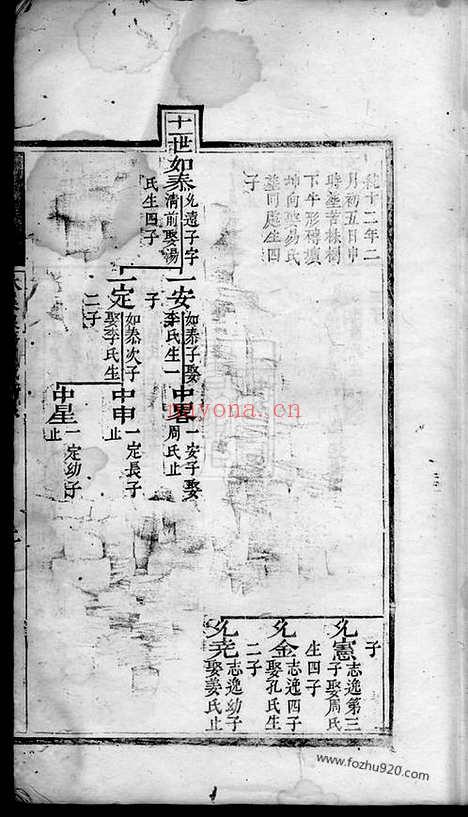 乾十二年二
月初五日申
時塟苦株樹
下午形磚壙
坤向娶易氏
塟同處生四
子
子
允憲志逸第三
子娶周氏
生四子
允金志逸四子
娶孔氏生
二子
允尭志逸幼子
娶姜氏止
十一世如泰允遠子字
清前娶湯
氏生四子
一安如泰子娶
李氏生一
子
一定如泰次子
娶李氏生
二子
中畧一安子娶
周氏止
中申一定長子
止
中星一定幼子
止
nayona.cn
www.fozhu920.com